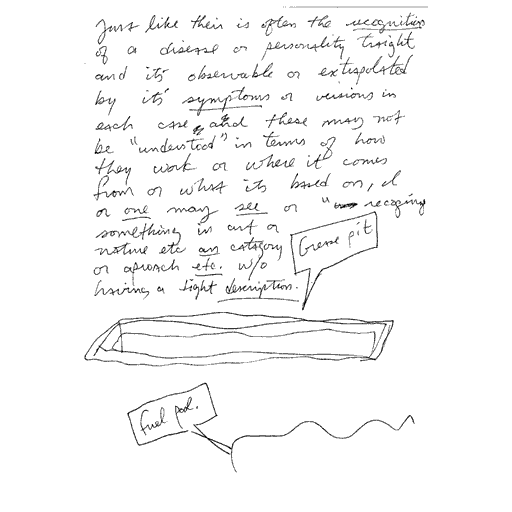 Just like their is often the recognition
of a disease or personality traight
and it's observable or extrapolated
by it's symptoms or versions in
each case, and these may not
be "understood" in terms of how
they work or where it comes
from or what its based on, I
or one may see or " recognize
something in art or
nature etc an category
or aproach etc. w/o
having a tight description.
Grease pit
Fuel pool.